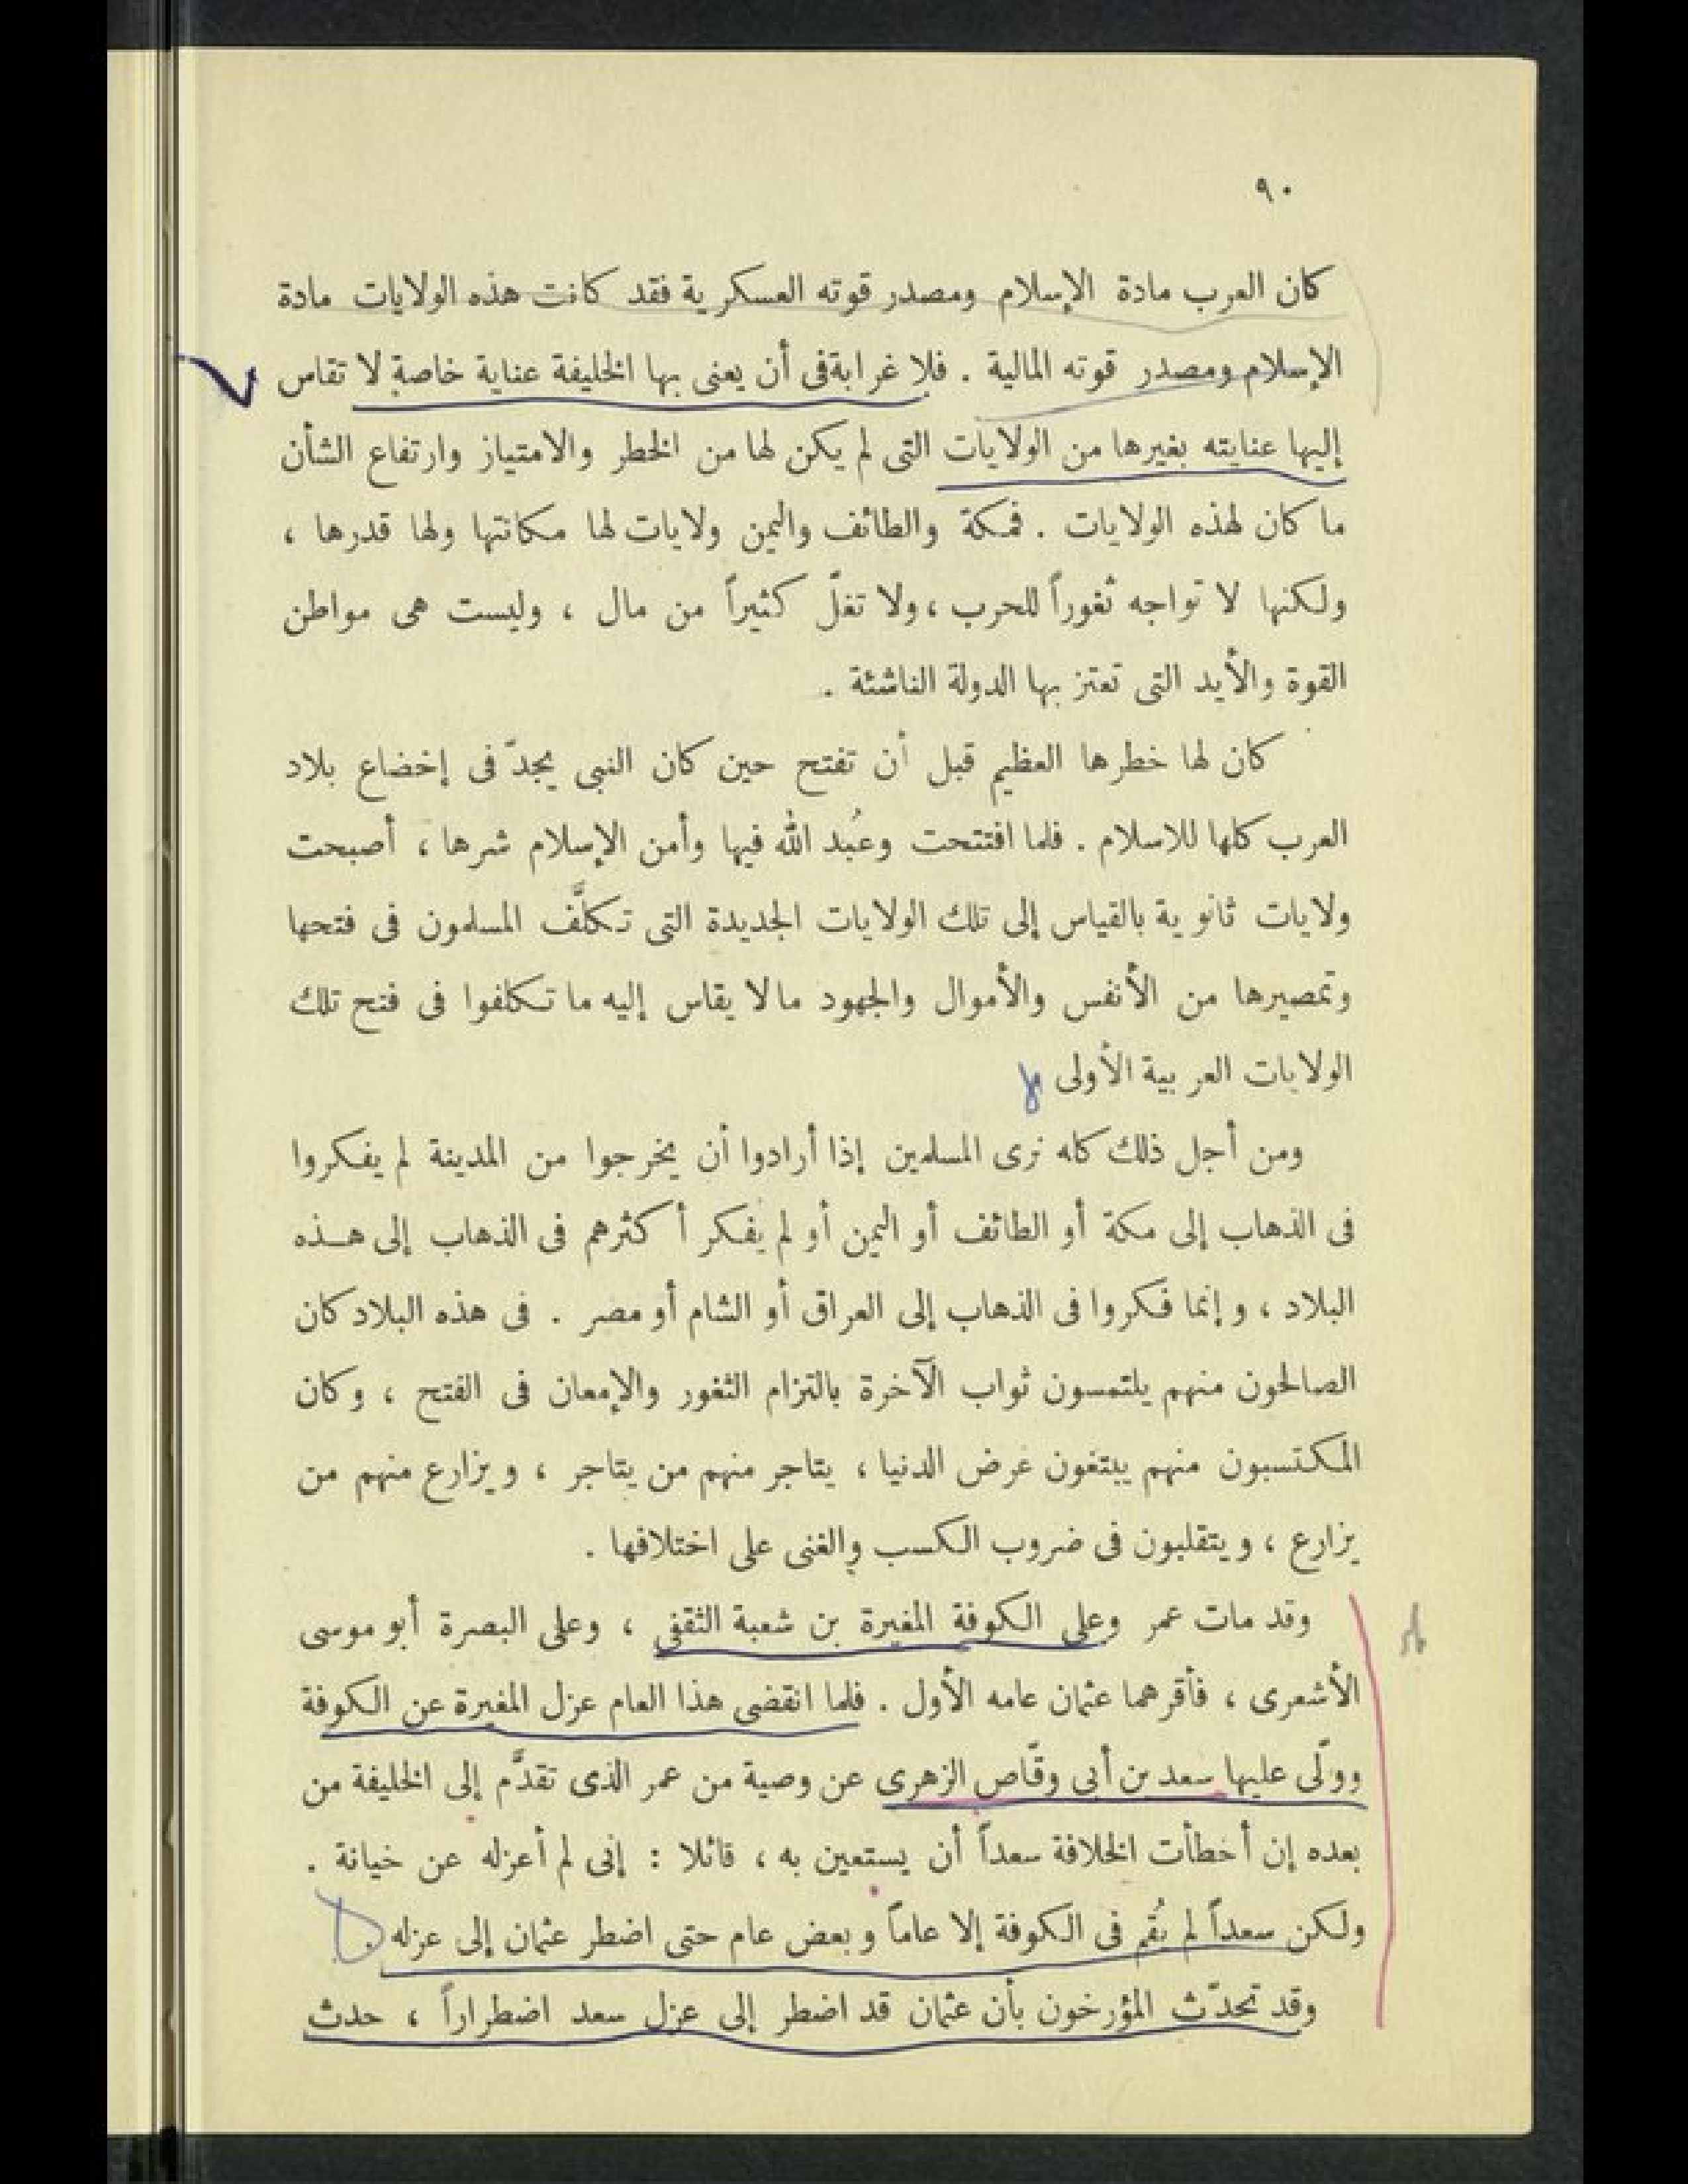 ٩٠
كان العرب مادة الإسلام ومصدر قوته العسكرية فقد كانت هذه الولايات مادة
الإسلام ومصدر قوته المالية . فلا غرابة فى أن يعنى بها الخليفة عناية خاصة لا تقاس
إليها عنايته بغيرها من الولايات التى لم يكن لها من الخطر والامتياز وارتفاع الشأن
ما كان لهذه الولايات . فمكة والطائف واليمن ولايات لها مكانتها ولها قدرها ،
ولكنها لا تواجه ثغوراً للحرب ، ولا تغلّ كثيراً من مال ، وليست هى مواطن
القوة والأيد التى تعتز بها الدولة الناشئة .
كان لها خطرها العظيم قبل أن تفتح حين كان النبى يجدّ فى إخضاع بلاد
العرب كلها للاسلام . فلما افتتحت وعُبد الله فيها وأمن الإسلام شرها ، أصبحت
ولايات ثانوية بالقياس إلى تلك الولايات الجديدة التى تكلَّف المسلمون فى فتحها
وتمصيرها من الأنفس والأموال والجهود مالا يقاس إليه ما تكلفوا فى فتح تلك
الولايات العربية الأولى
ومن أجل ذلك كله نرى المسلمين إذا أرادوا أن يخرجوا من المدينة لم يفكروا
فى الذهاب إلى مكة أو الطائف أو اليمن أو لم يفكر أكثرهم فى الذهاب إلى هذه
البلاد ، وإنما فكروا فى الذهاب إلى العراق أو الشام أو مصر . فى هذه البلاد كان
الصالحون منهم يلتمسون ثواب الآخرة بالتزام الثغور والإمعان فى الفتح ، وكان
المكتسبون منهم يبتغون عرض الدنيا ، يتاجر منهم من يتاجر ، ويزارع منهم من
يزارع ، ويتقلبون فى ضروب الكسب والغنى على اختلافها .
وقد مات عمر وعلى الكوفة المغيرة بن شعبة الثقفى ، وعلى البصرة أبو موسى
الأشعرى ، فأقرهما عثمان عامه الأول . فلما انقضى هذا العام عزل المغيرة عن الكوفة
وولّى عليها سعد بن أبى وقّاص الزهرى عن وصية من عمر الذى تقدَّم إلى الخليفة من
بعده إن أخطأت الخلافة سعداً أن يستعين به ، قائلا : إنى لم أعزله عن خيانة .
ولكن سعداً لم يُقم فى الكوفة إلا عاماً وبعض عام حتى اضطر عثمان إلى عزله .
وقد تحدّث المؤرخون بأن عثمان قد اضطر إلى عزل سعد اضطراراً ، حدث